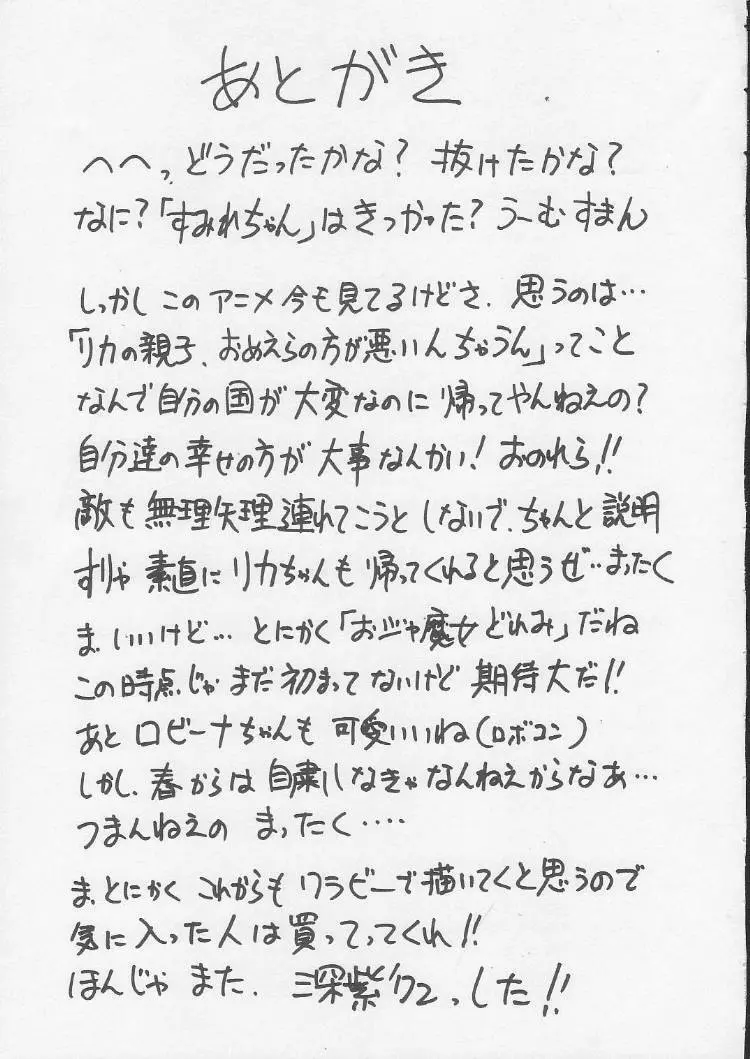 あとがき
へへっ、どうだったかな？ 抜けたかな？
なに？「すみれちゃん」はきつかった？ うーむすまん
しっかし このアニメ今も見てるけどさ、思うのは…
「リカの親子、おめえらの方が悪いんちゃうん」ってこと
なんで自分の国が 大変なのに 帰ってやんねえの？
自分達の幸せの方が 大事なんかい！ おのれら!!
敵も無理矢理連れてこうと しないで、ちゃんと説明
すりゃ 素直にリカちゃんも 帰ってくれると思うぜ…まったく
ま、いいけど… とにかく「おジャ魔女どれみ」だね
この時点じゃ まだ 初まって ないけど 期待大だ!!
あと ロビーナちゃんも 可愛いいね(ロボコン)
しかし、春からは 自粛しなきゃなんねえからなあ…
つまんねえの まったく‥‥
ま、とにかく これからも ワラビーで描いてくと思うので
気に入った人は買ってってくれ!!
ほんじゃ また、三深紫 っした!!